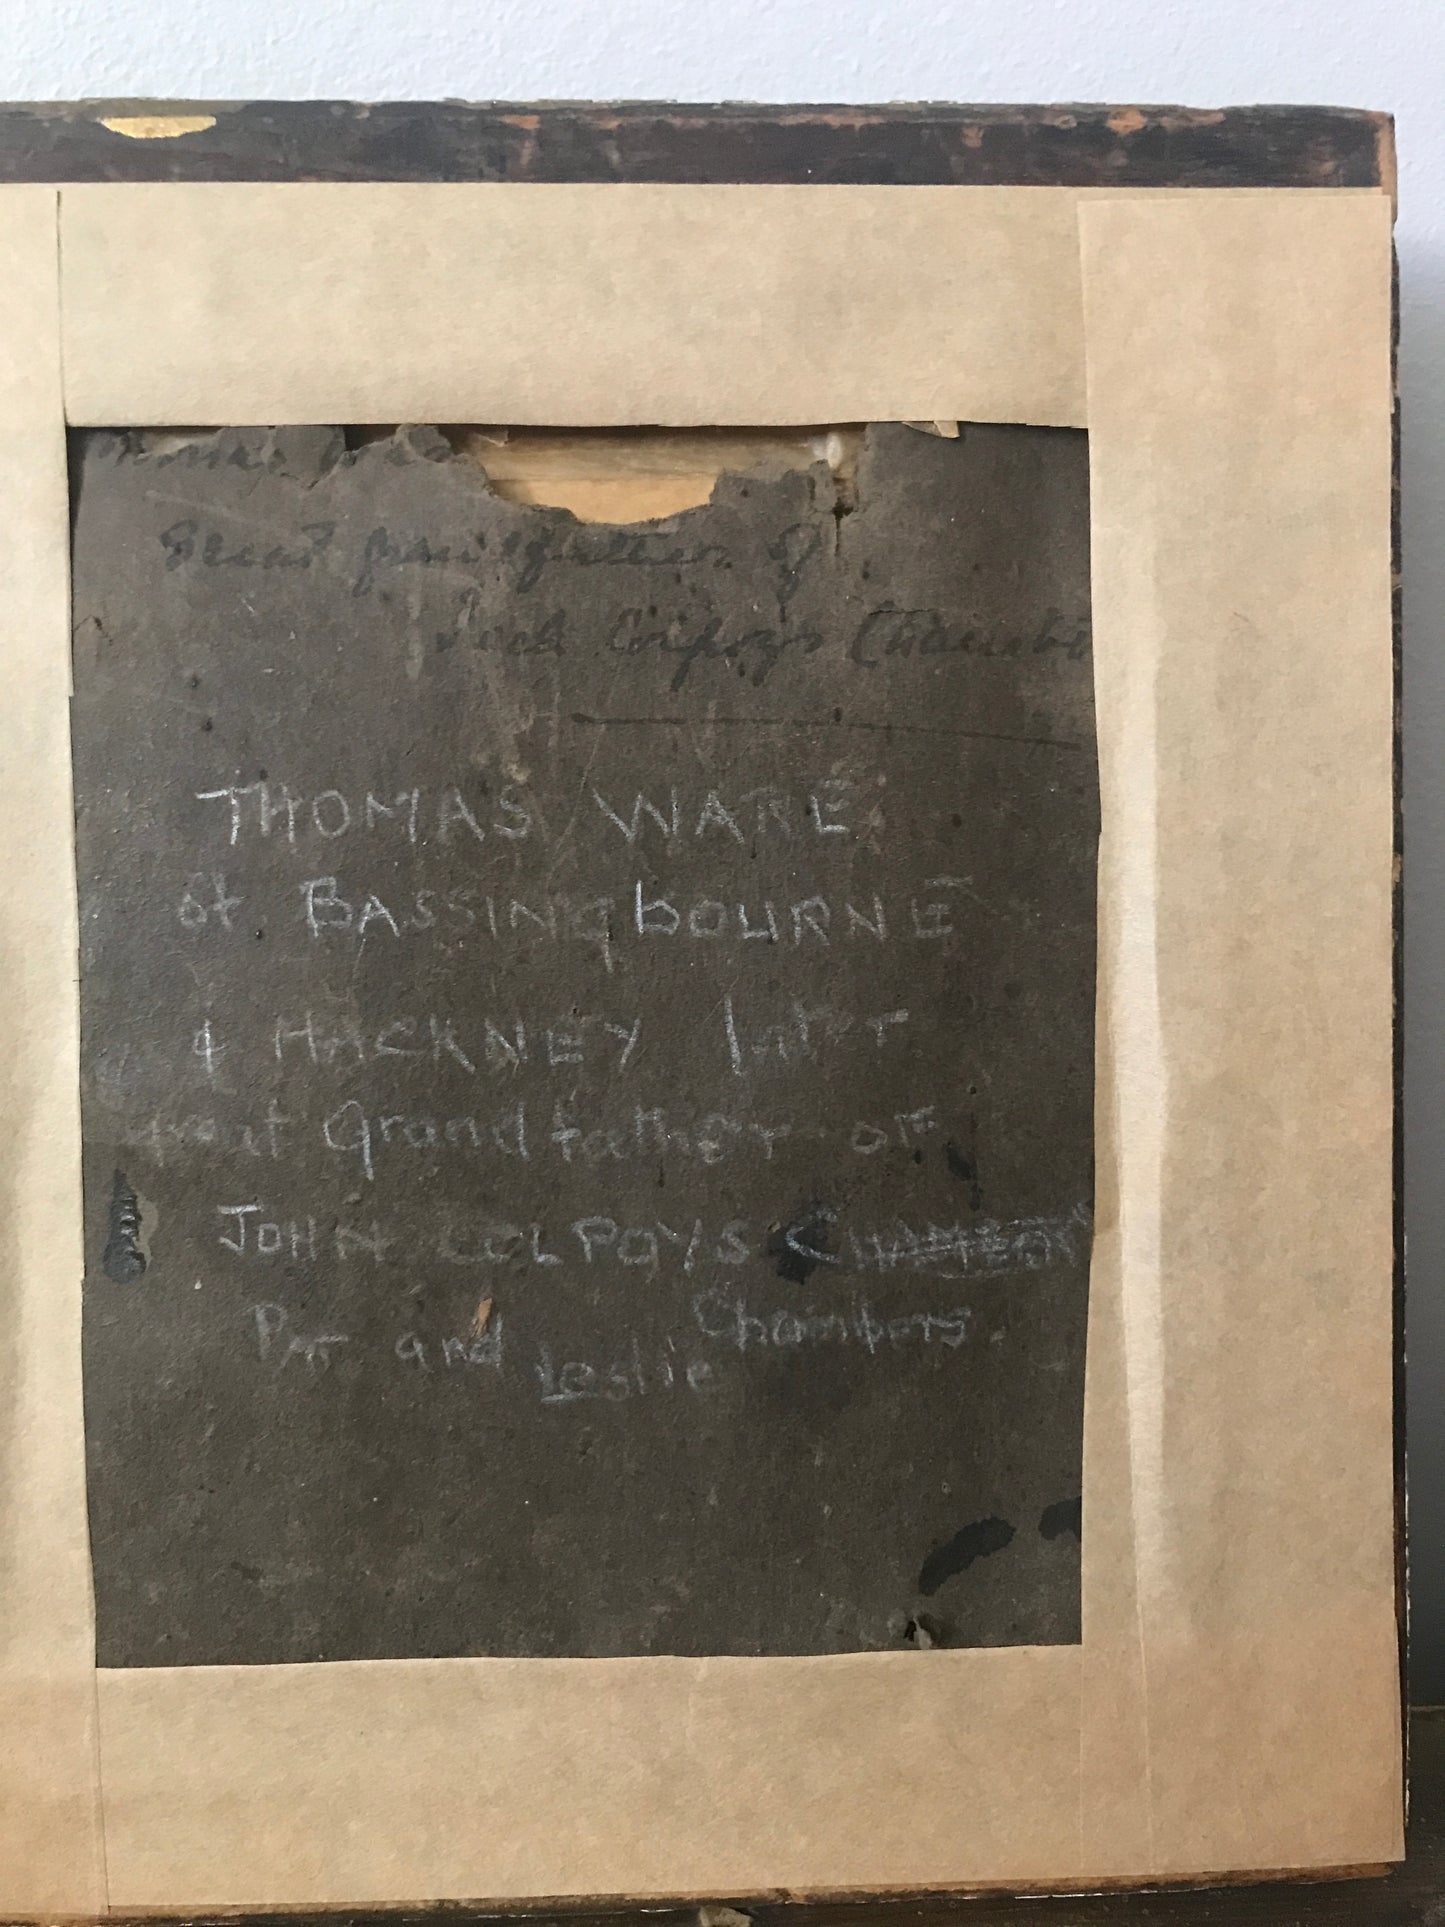 Thomas
Great grandfather of
Colpoys Chambe
THOMAS WARE
of BASSINGbOURNE
& HACKNEY later
great Grandfather OF
JOHN COLPOYS
Pat and Leslie Chambers.